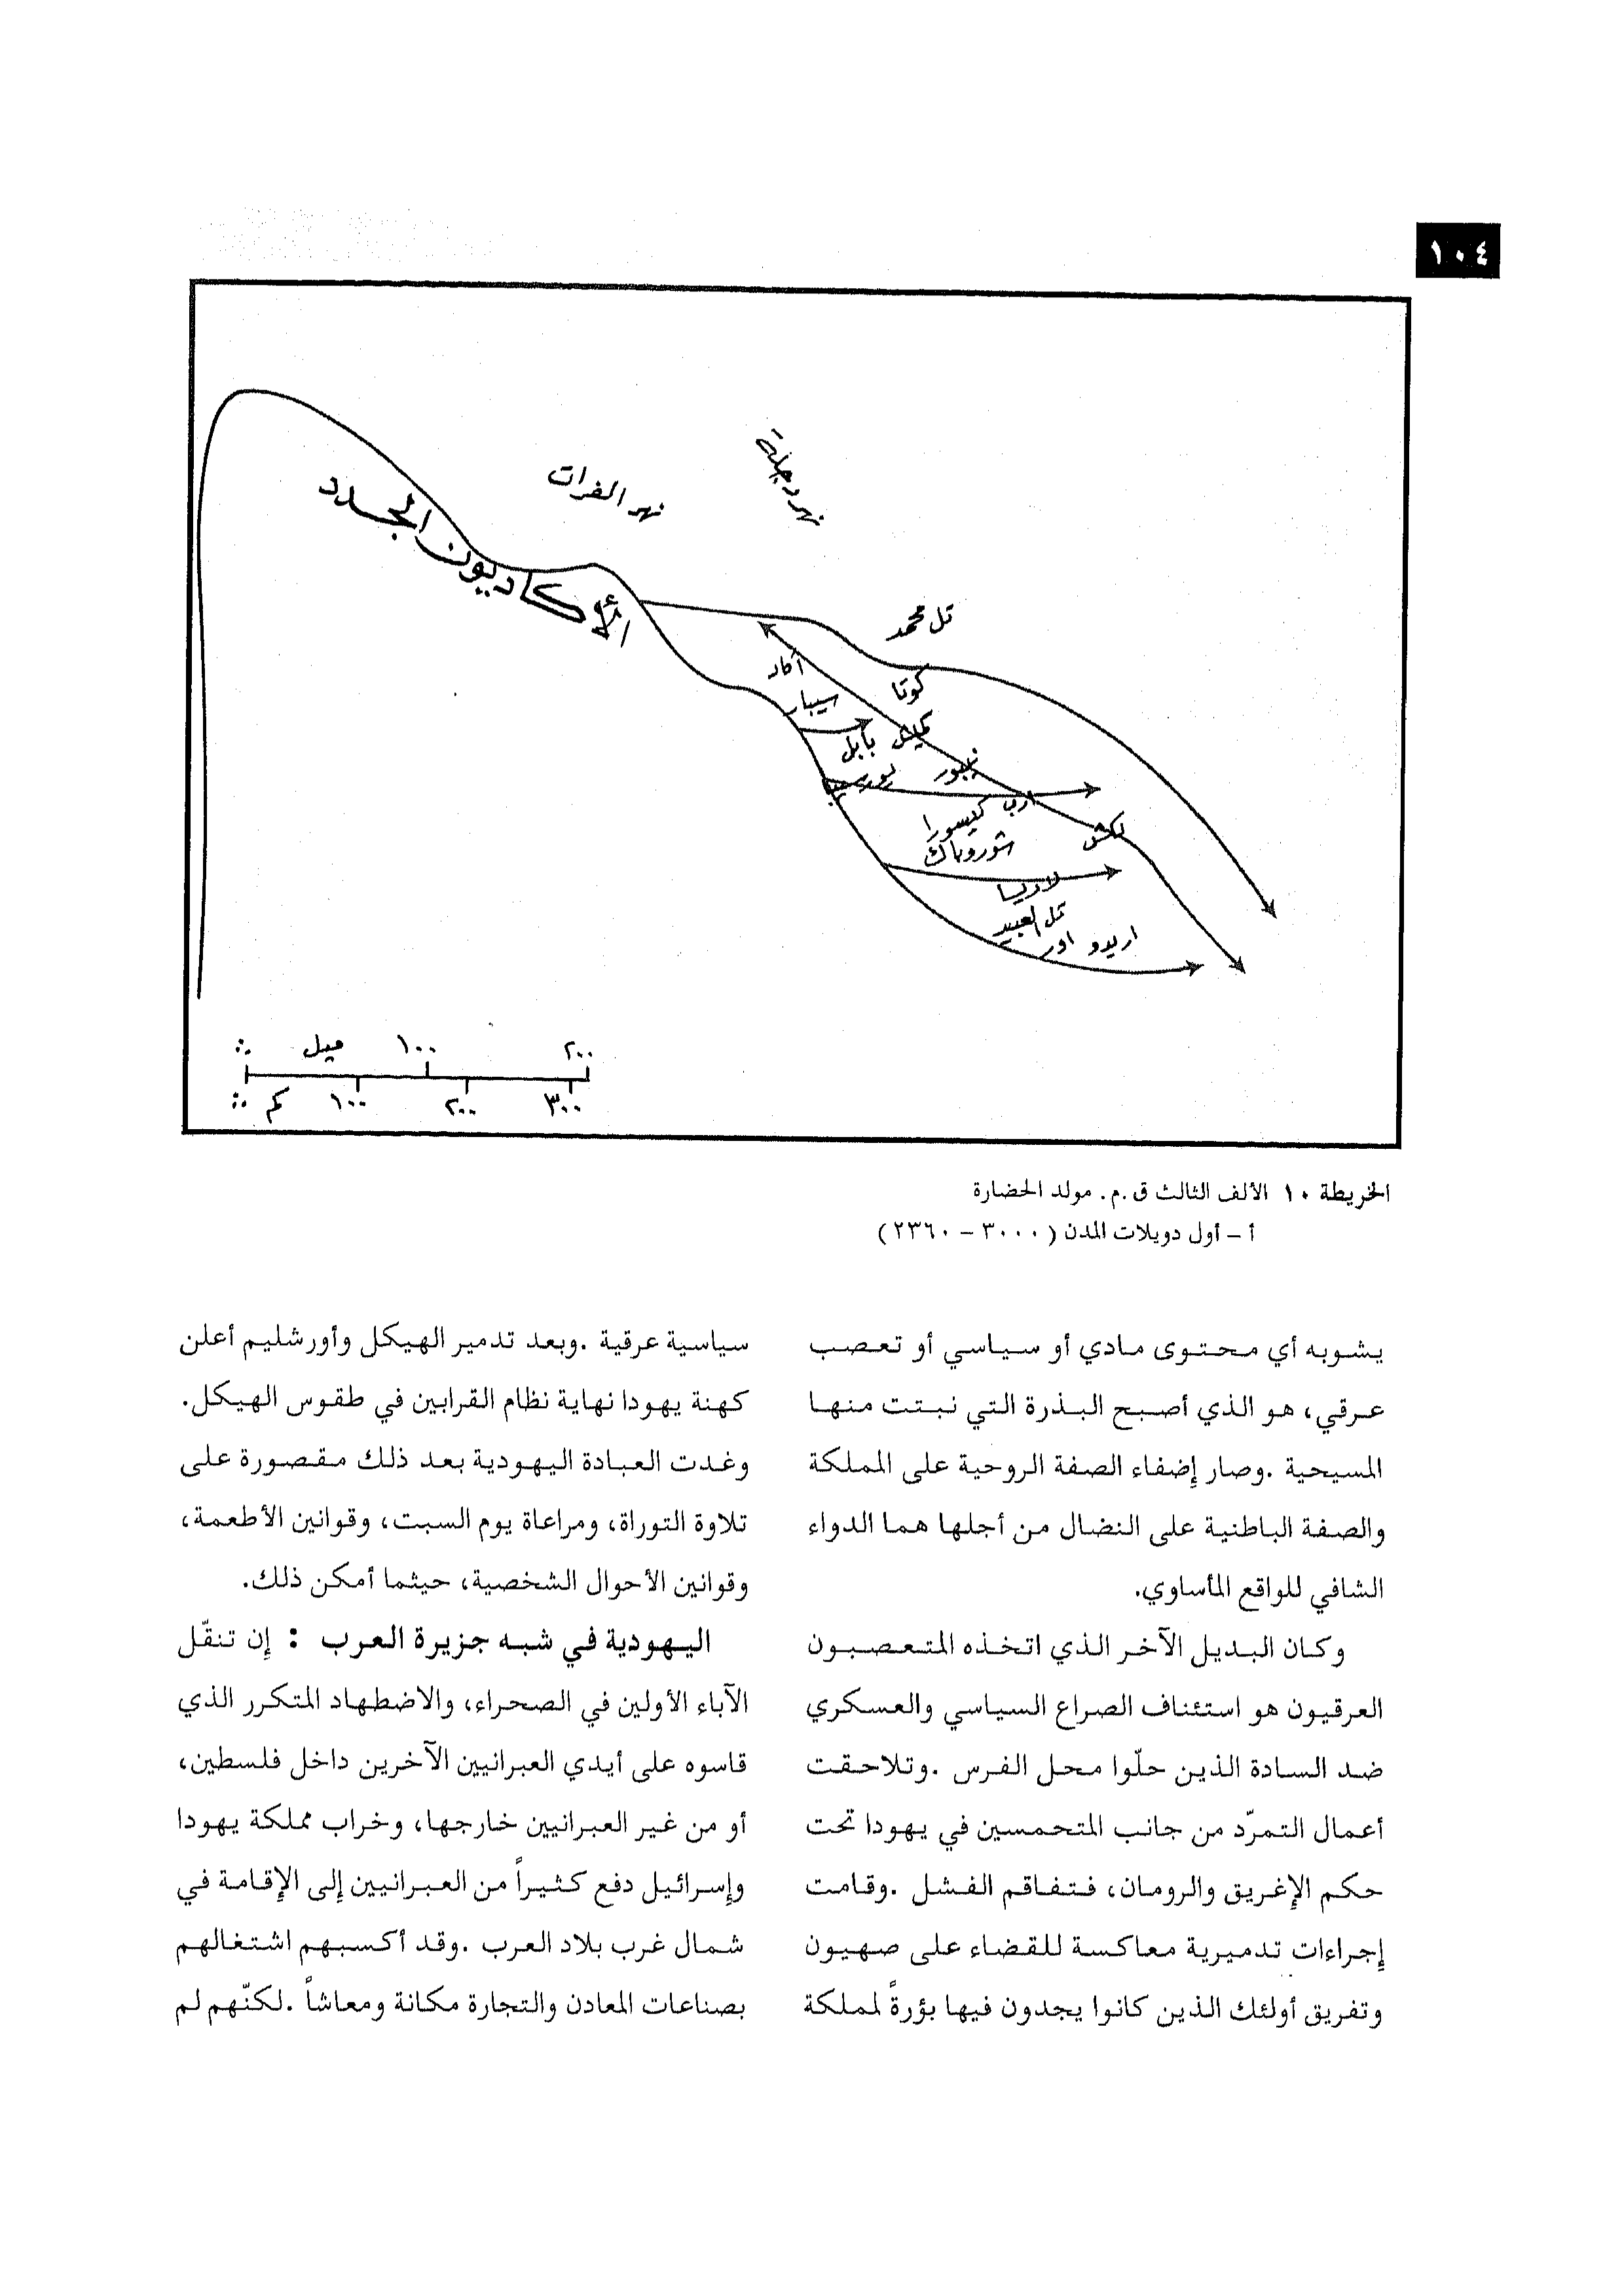 ١٠٤
نهر دجلة
نهر الفرات
الأكاديون الجدد
تل محمد
أكاد
كوتا
سيبار
كيش
بابل
نيبور
بورسيبا
كيسورا
لكش
شوروباك
لارسا
تل العبيد
اريدو اور
ميل ١٠٠ ٢٠٠
كم ١٠٠ ٢٠٠ ٣٠٠
الخريطة ١٠ الألف الثالث ق.م. مولد الحضارة
أ – أول دويلات المدن (٣٠٠٠ – ٢٣٦٠)
يشوبه أي محتوى مادي أو سياسي أو تعصب
عرقي، هو الذي أصبح البذرة التي نبتت منها
المسيحية .وصار إضفاء الصفة الروحية على المملكة
والصفة الباطنية على النضال من أجلها هما الدواء
الشافي للواقع المأساوي.
وكان البديل الآخر الذي اتخذه المتعصبون
العرقيون هو استئناف الصراع السياسي والعسكري
ضد السادة الذين حلّوا محل الفرس .وتلاحقت
أعمال التمرّد من جانب المتحمسين في يهودا تحت
حكم الإغريق والرومان، فتفاقم الفشل .وقامت
إجراءات تدميرية معاكسة للقضاء على صهيون
وتفريق أولئك الذين كانوا يجدون فيها بؤرةً لمملكة
سياسية عرقية .وبعد تدمير الهيكل وأورشليم أعلن
كهنة يهودا نهاية نظام القرابين في طقوس الهيكل.
وغدت العبادة اليهودية بعد ذلك مقصورة على
تلاوة التوراة، ومراعاة يوم السبت، وقوانين الأطعمة،
وقوانين الأحوال الشخصية، حيثما أمكن ذلك.
اليهودية في شبه جزيرة العرب : إن تنقّل
الآباء الأولين في الصحراء، والاضطهاد المتكرر الذي
قاسوه على أيدي العبرانيين الآخرين داخل فلسطين،
أو من غير العبرانيين خارجها، وخراب مملكة يهودا
وإسرائيل دفع كثيراً من العبرانيين إلى الإقامة في
شمال غرب بلاد العرب .وقد أكسبهم اشتغالهم
بصناعات المعادن والتجارة مكانة ومعاشاً .لكنّهم لم